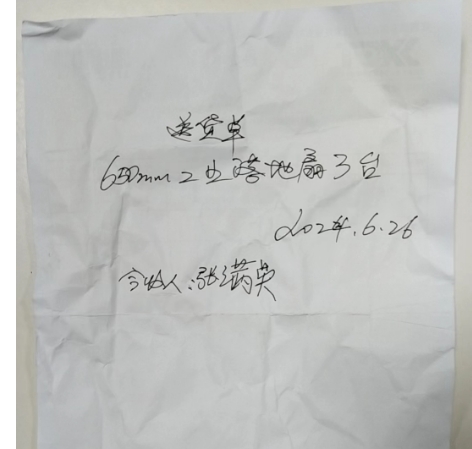 送货单
650mm工业落地扇3台
2024.6.26
今收人:张满英